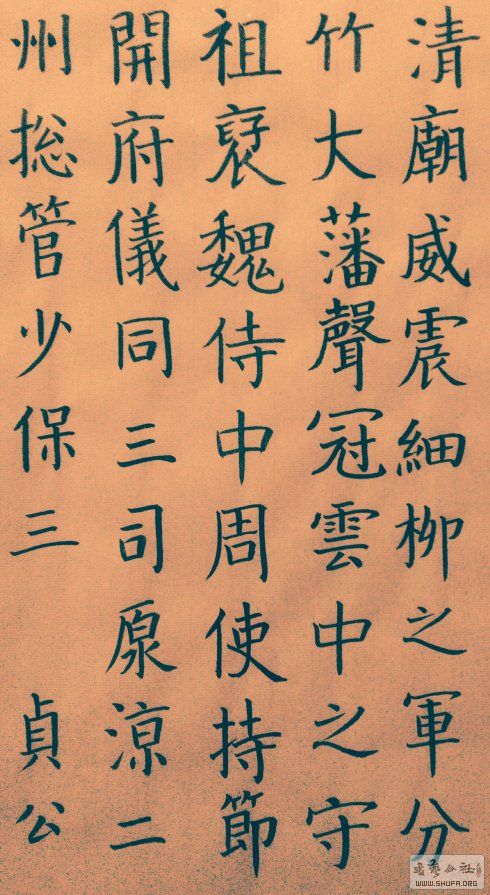 清廟威震細柳之軍分
竹大藩聲冠雲中之守
祖裦魏侍中周使持節
開府儀同三司原涼二
州捴管少保三 貞公
WWW.SHUFA.ORG